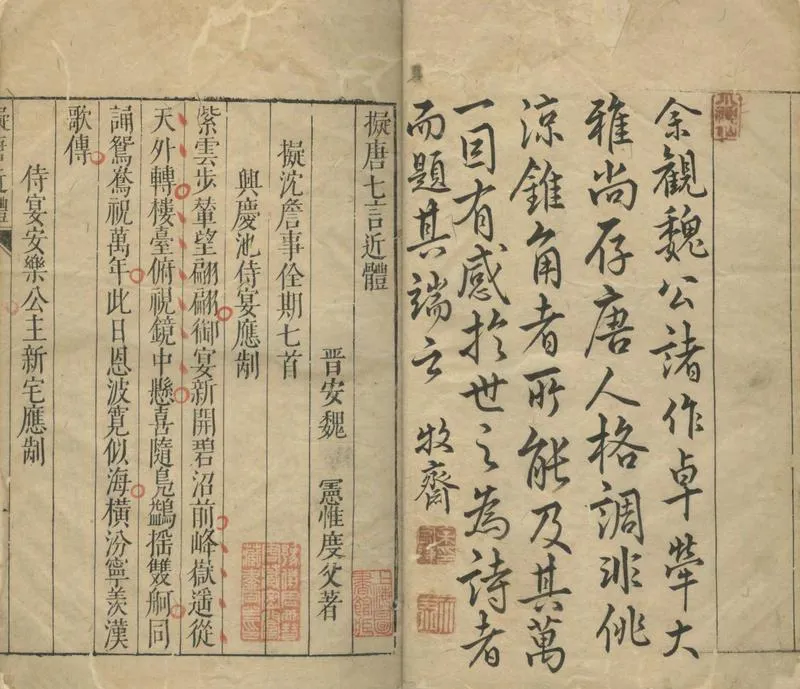 余觀魏公諸作卓犖大
雅尚存唐人格調非佻
涼錐角者所能及其萬
一因有感於世之為詩者
而題其端云 牧齋
擬唐七言近體
晋安魏 憲惟度父著
擬沈詹事佺期七首
興慶池侍宴應制
紫雲步輦望翩翩御宴新開碧沼前峰嶽遥從
天外轉樓臺俯視鏡中懸喜隨鳧鷁摇雙舸同
誦鴛鴦祝萬年此日恩波寛似海橫汾寧羡漢
歌傳
侍宴安樂公主新宅應制
擬唐近體